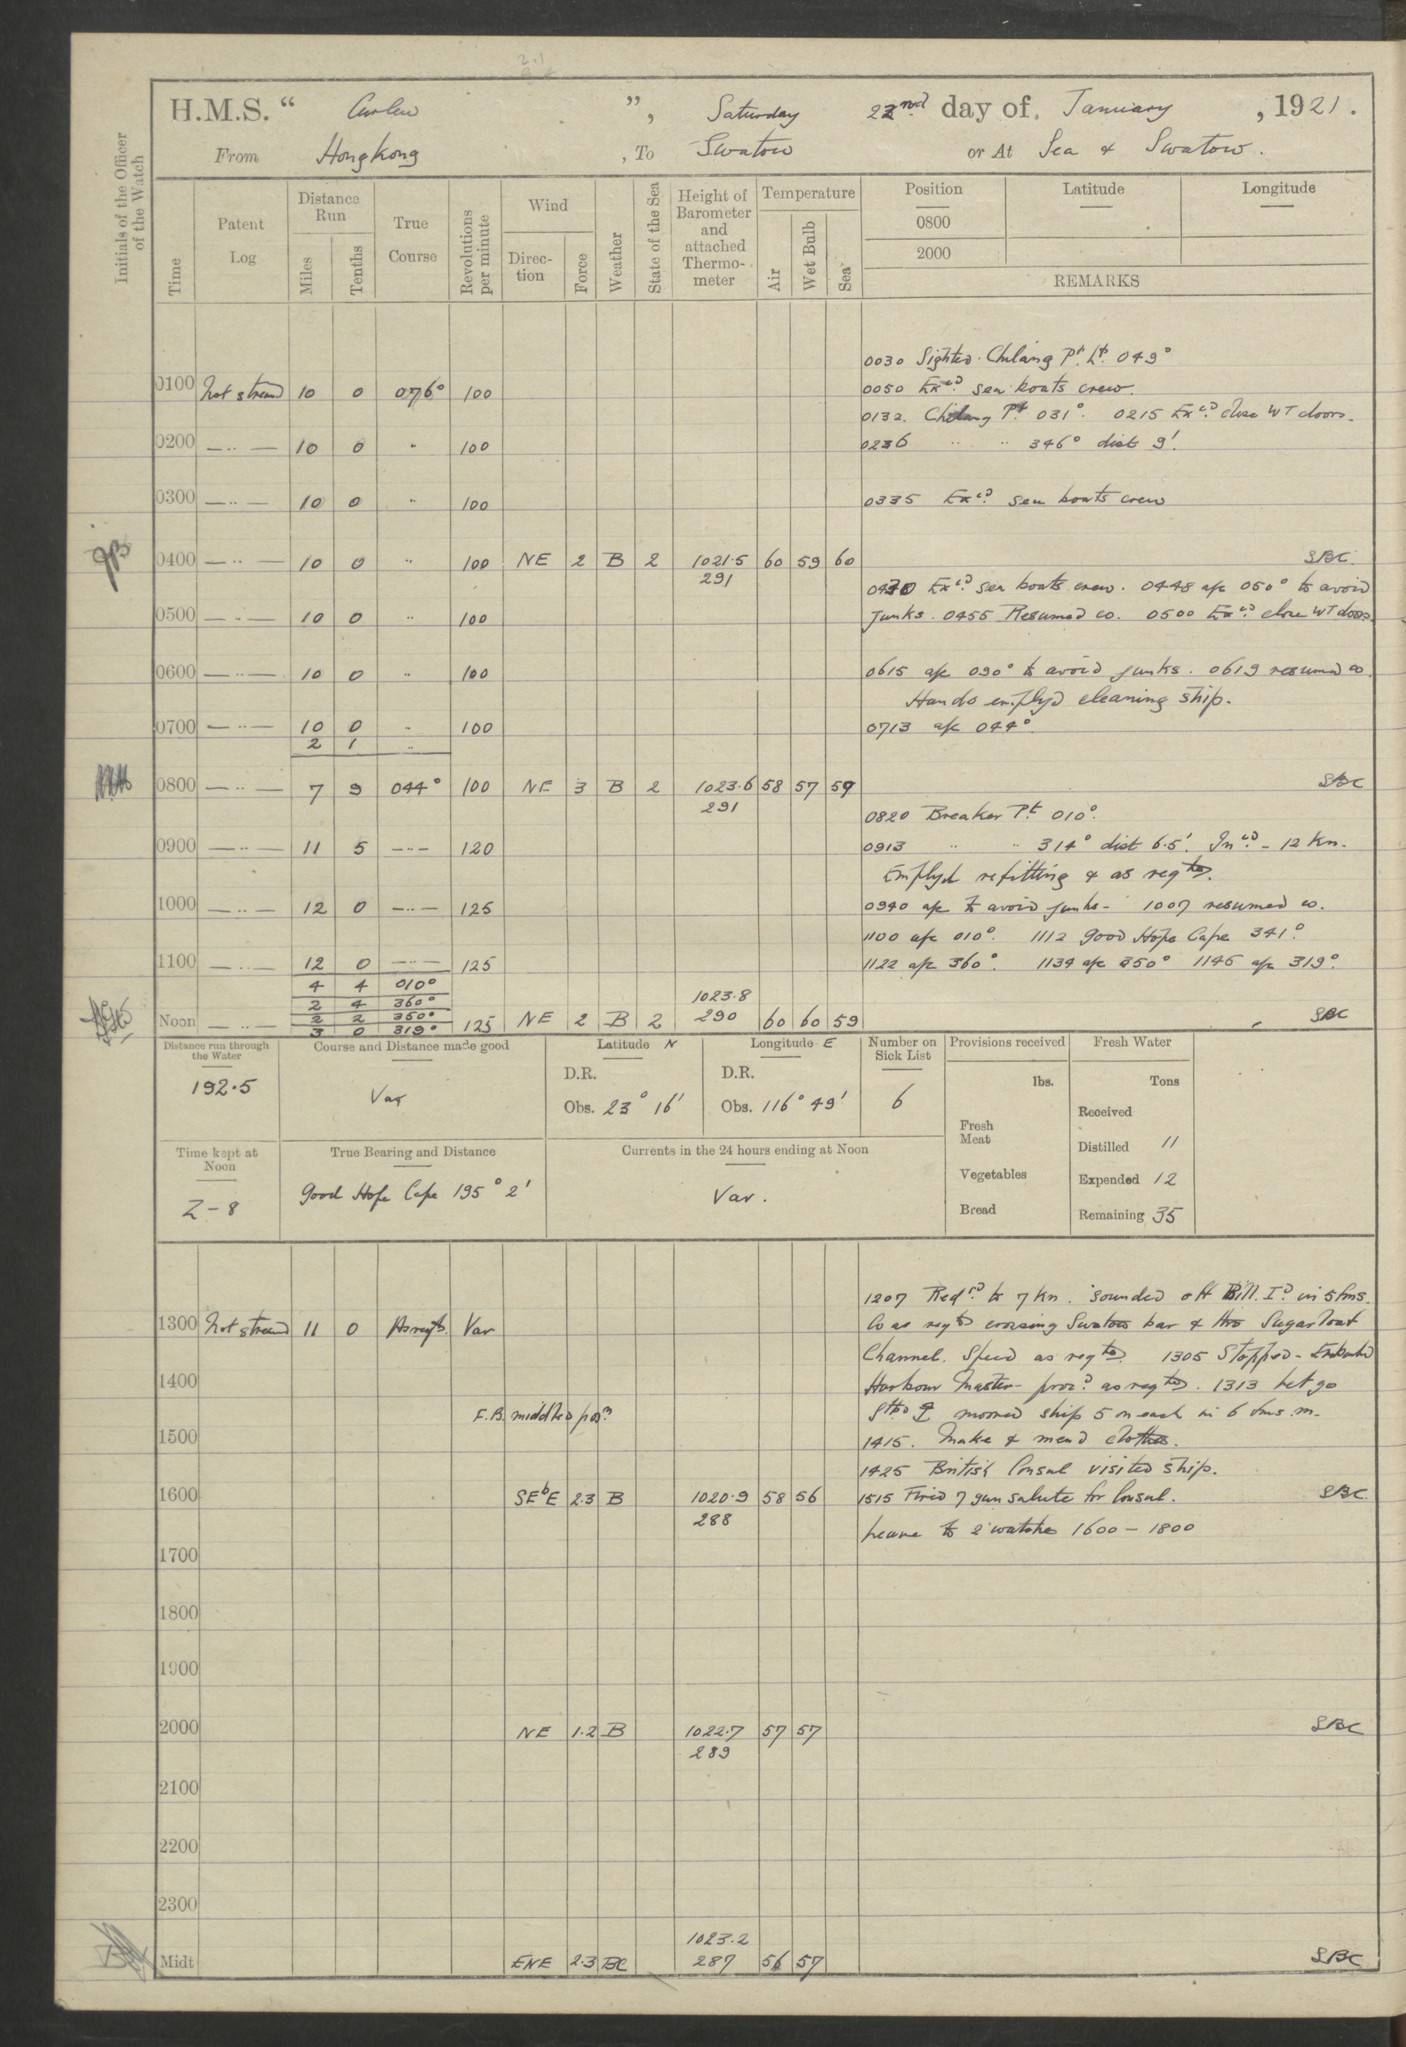 H.M.S. “ Curlew ”, Saturday 22nd day of January, 1921.
From Hongkong, To Swatow or At Sea & Swatow.
Initials of the Officer of the Watch
Time
Patent Log
Distance Run
Miles
Tenths
True Course
Revolutions per minute
Wind
Direction
Force
Weather
State of the Sea
Height of Barometer and attached Thermometer
Temperature
Air
Wet Bulb
Sea
Position Latitude Longitude
0800
2000
REMARKS
0030 Sighted Chilang Pt. Lt. 049°
0100 Not streamed 10 0 076° 100 0050 Excd sea boats crew.
0132. Chilang Pt 031°. 0215 Excd close WT doors.
0200 — " — 10 0 " 100 0236 " " 346° dist 9'
0300 — " — 10 0 " 100 0335 Excd sea boats crew
0400 — " — 10 0 " 100 NE 2 B 2 1021.5 60 59 60 SBC
291
0430 Excd sea boats crew. 0448 a/c 050° to avoid
0500 — " — 10 0 " 100 junks. 0455 Resumed co. 0500 Excd close WT doors
0600 — " — 10 0 " 100 0615 a/c 090° to avoid junks. 0619 resumed co.
Hands emplyd cleaning ship.
0700 — " — 10 0 " 100 0713 a/c 044°
2 1 "
0800 — " — 7 9 044° 100 NE 3 B 2 1023.6 58 57 59 SBC
291
0820 Breaker Pt 010°.
0900 — " — 11 5 — " — 120 0913 " " 314° dist 6.5'. Incd - 12 Kn.
Emplyd refitting & as reqtd.
1000 — " — 12 0 — " — 125 0940 a/c to avoid junks - 1007 resumed co.
1100 a/c 010°. 1112 Good Hope Cape 341°.
1100 — " — 12 0 — " — 125 1122 a/c 360°. 1134 a/c 350° 1145 a/c 319°.
4 4 010°
2 4 360° 1023.8
2 2 350°
Noon — " — 3 0 319° 125 NE 2 B 2 290 60 60 59 SBC
Distance run through the Water
192.5
Course and Distance made good
Var
Latitude N
D.R.
Obs. 23° 16'
Longitude E
D.R.
Obs. 116° 49'
Number on Sick List
6
Provisions received
lbs.
Fresh Meat
Vegetables
Bread
Fresh Water
Tons
Received
Distilled 11
Expended 12
Remaining 35
Time kept at Noon
Z - 8
True Bearing and Distance
Good Hope Cape 195° 2'
Currents in the 24 hours ending at Noon
Var.
1207 Redcd to 7 Kn. Sounded off Bill Id in 5 fms.
1300 Not streamed 11 0 As reqtd. Var Co as reqtd crossing Swatow bar & thro Sugar loaf
Channel. Speed as reqtd. 1305 Stopped - Embarkd
1400 Harbour Master - procd as reqtd. 1313 let go
E.B. middled posn moored ship 5 on each in 6 fms. m.
1500 1415. Make & mend clothes.
1425 British Consul visited ship.
1600 SEbE 2.3 B 1020.9 58 56 1515 Fired 7 gun salute for Consul. SBC
288
Leave to 2 watches 1600 - 1800
1700
1800
1900
2000 NE 1.2 B 1022.7 57 57 SBC
289
2100
2200
2300
1023.2
Midt ENE 2.3 BC 287 56 57 SBC